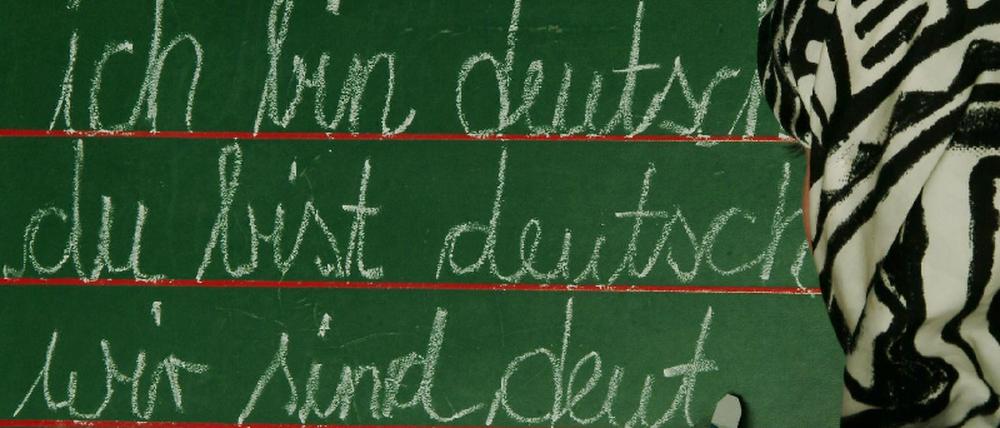 ich bin deutsch
du bist deutsch
wir sind deut